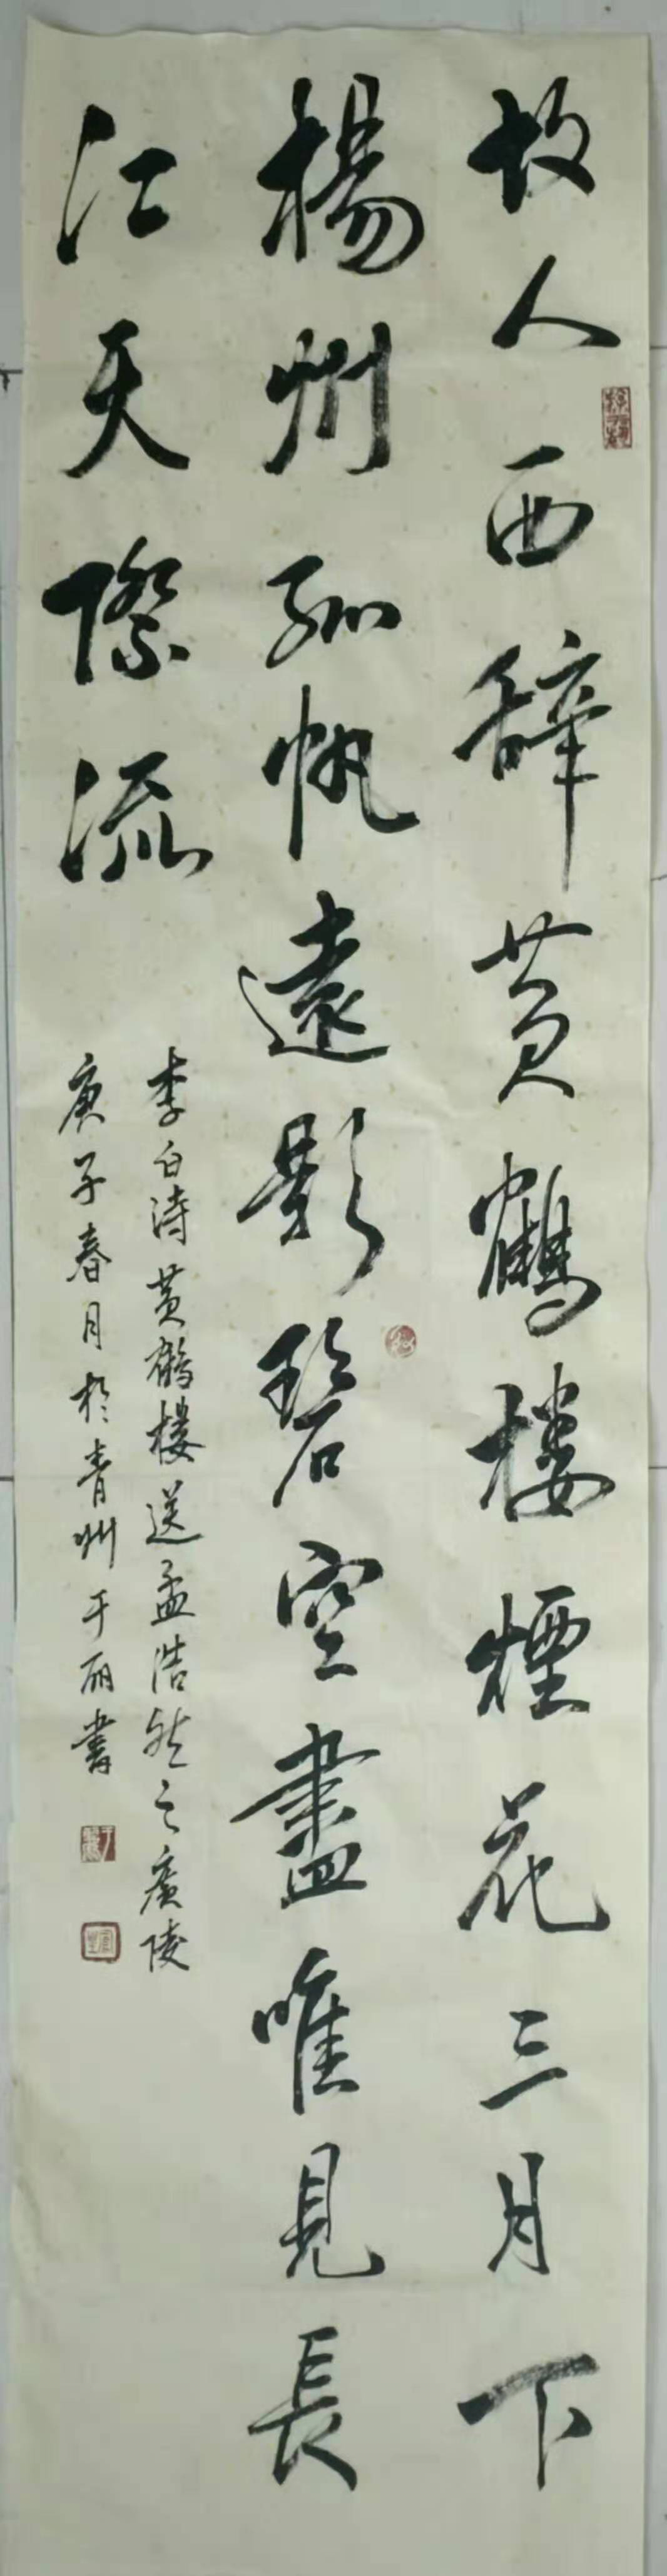 故人西辭黄鶴樓煙花三月下
楊州孤帆遠影碧空盡唯見長
江天際流
李白詩黄鶴樓送孟浩然之廣陵
庚子春月於青州于丽書